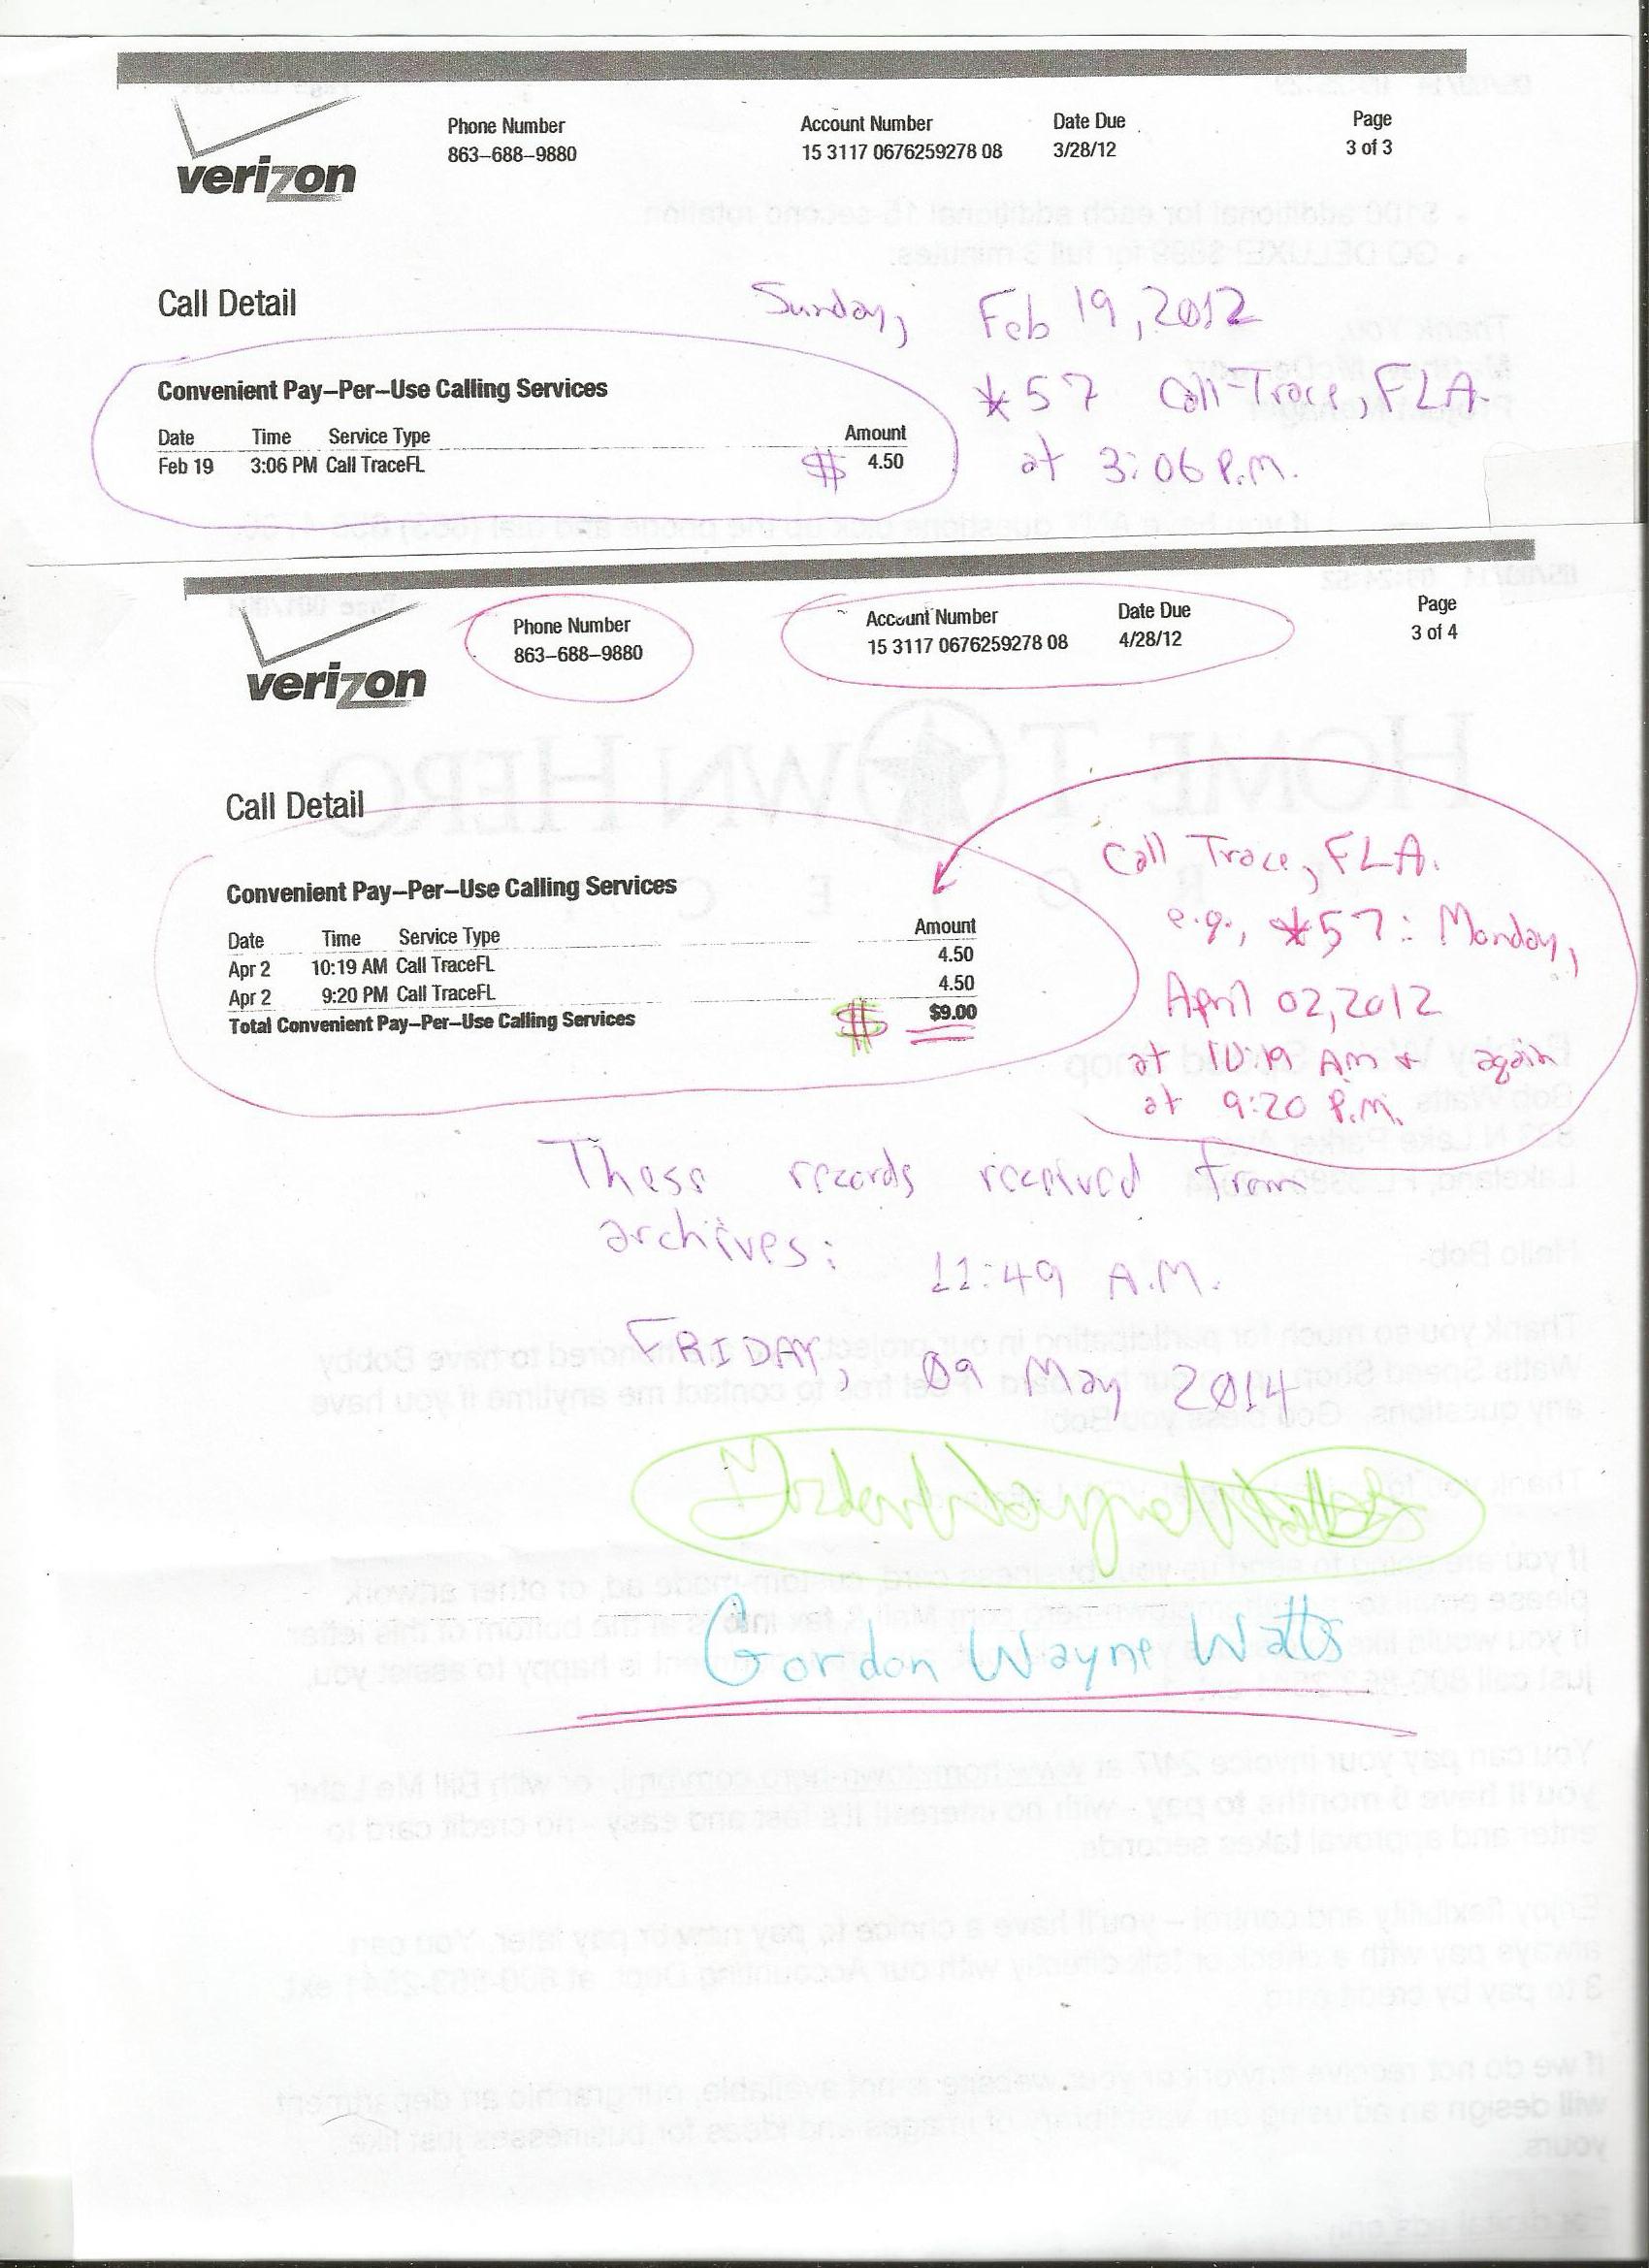 verizon
Phone Number
863–688–9880
Account Number
15 3117 0676259278 08
Date Due
3/28/12
Page
3 of 3
Call Detail
Sunday, Feb 19, 2012
*57 Call-Trace, FLA.
at 3:06 P.M.
Convenient Pay–Per–Use Calling Services
Date Time Service Type Amount
Feb 19 3:06 PM Call TraceFL $ 4.50
verizon
Phone Number
863–688–9880
Account Number
15 3117 0676259278 08
Date Due
4/28/12
Page
3 of 4
Call Detail
Convenient Pay–Per–Use Calling Services
Date Time Service Type Amount
Apr 2 10:19 AM Call TraceFL 4.50
Apr 2 9:20 PM Call TraceFL 4.50
Total Convenient Pay–Per–Use Calling Services $ $9.00
Call Trace, FLA.
e.g., *57: Monday,
April 02, 2012
at 10:19 AM & again
at 9:20 P.M.
These records received from
archives: 11:49 A.M.
FRIDAY, 09 May 2014
Gordon Wayne Watts
Gordon Wayne Watts